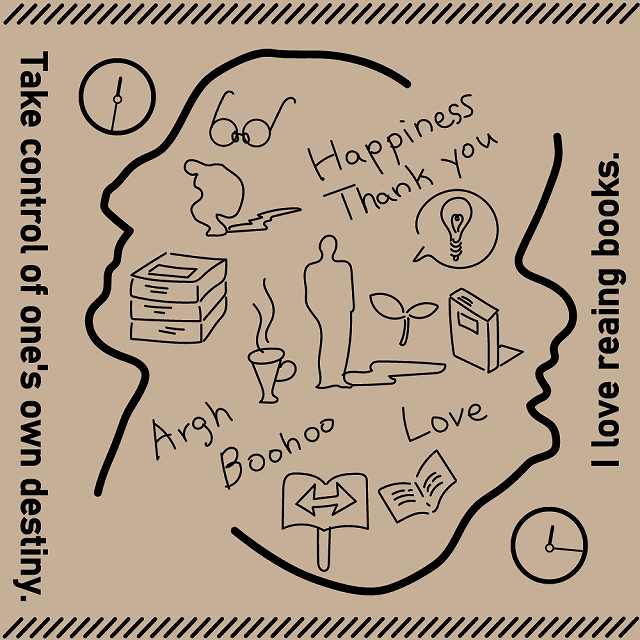 Take control of one's own destiny.
Happiness
Thank you
Argh
Boohoo
Love
I love reaing books.